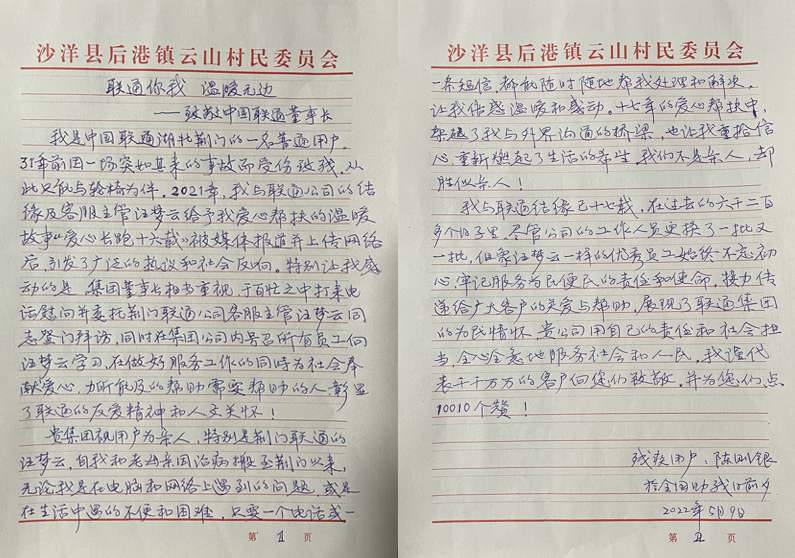 沙洋县后港镇云山村民委员会
联通你我 温暖无边
——致敬中国联通董事长
我是中国联通湖北荆门的一名普通用户，
31年前因一场突如其来的事故而受伤致残，从
此只能与轮椅为伴。2021年，我与联通公司的结
缘及客服主管汪梦云给予我爱心帮扶的温暖
故事“爱心长跑十六载”被媒体报道并上传网络
后，引发了广泛的热议和社会反响。特别让我感
动的是，集团董事长相当重视，于百忙之中打来电
话慰问并委托荆门联通公司客服主管汪梦云同
志登门拜访，同时在集团公司内号召所有员工向
汪梦云学习，在做好服务工作的同时为社会奉
献爱心，力所能及的帮助需要帮助的人，彰显
了联通的友爱精神和人文关怀！
贵集团视用户为亲人，特别是荆门联通的
汪梦云，自我和老母亲因治病搬至荆门以来，
无论我是在电脑和网络上遇到的问题，或是
在生活中遇的不便和困难，只要一个电话或一
第 1 页
沙洋县后港镇云山村民委员会
一条短信，都能随时随地帮我处理和解决，
让我倍感温暖和感动。十七年的爱心帮扶中，
架起了我与外界沟通的桥梁，也让我重拾信
心，重新燃起了生活的希望。我们不是亲人，却
胜似亲人！
我与联通结缘已十七载，在过去的六千二百
多个日子里，尽管公司的工作人员更换了一批又
一批，但象汪梦云一样的优秀员工始终不忘初
心，牢记服务为民便民的责任和使命，接力传
递给广大客户的关爱与帮助，展现了联通集团
的为民情怀。贵公司用自己的责任和社会担
当，全心全意地服务社会和人民，我谨代
表千千万万的客户向您们致敬，并为您们点
10010个赞！
残疾用户：陈刚银
于全国助残日前夕
2022年5月9日
第 2 页